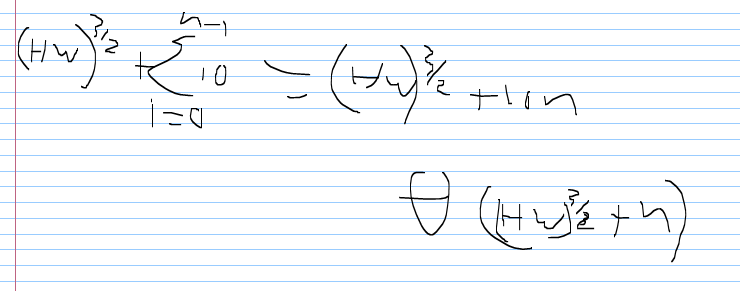 (HW)^{3/2} + \sum_{i=0}^{n-1} 10 = (HW)^{3/2} + 10n
θ((HW)^{3/2} + n)